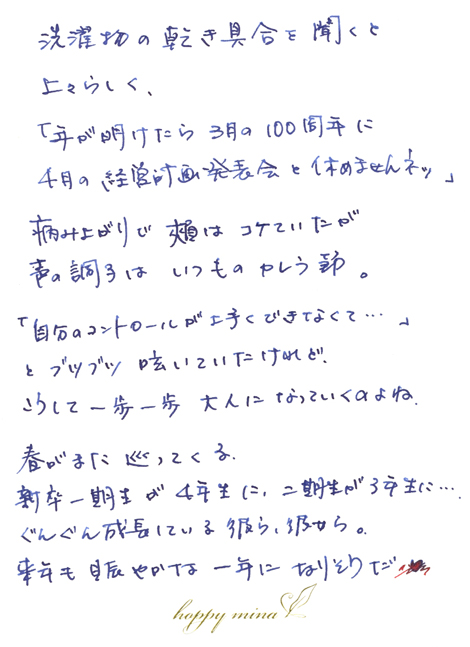 洗濯物の乾き具合を聞くと
上々らしく、
「年が明けたら 3月の100周年に
4月の経営計画発表会と休めませんネッ」
病み上がりで 頬は コケていたが
声の調子は いつもの カレラ節。
「自分のコントロールが上手くできてなくて…」
と ブツブツ 呟いていたけれど、
こうして 一歩一歩 大人に なっていくのよね。
春がまた 巡ってくる。
新卒一期生が 4年生に、二期生が3年生に…。
ぐんぐん成長している 彼ら、彼女ら。
来年も 賑やかな 一年に なりそうだ
happy mina